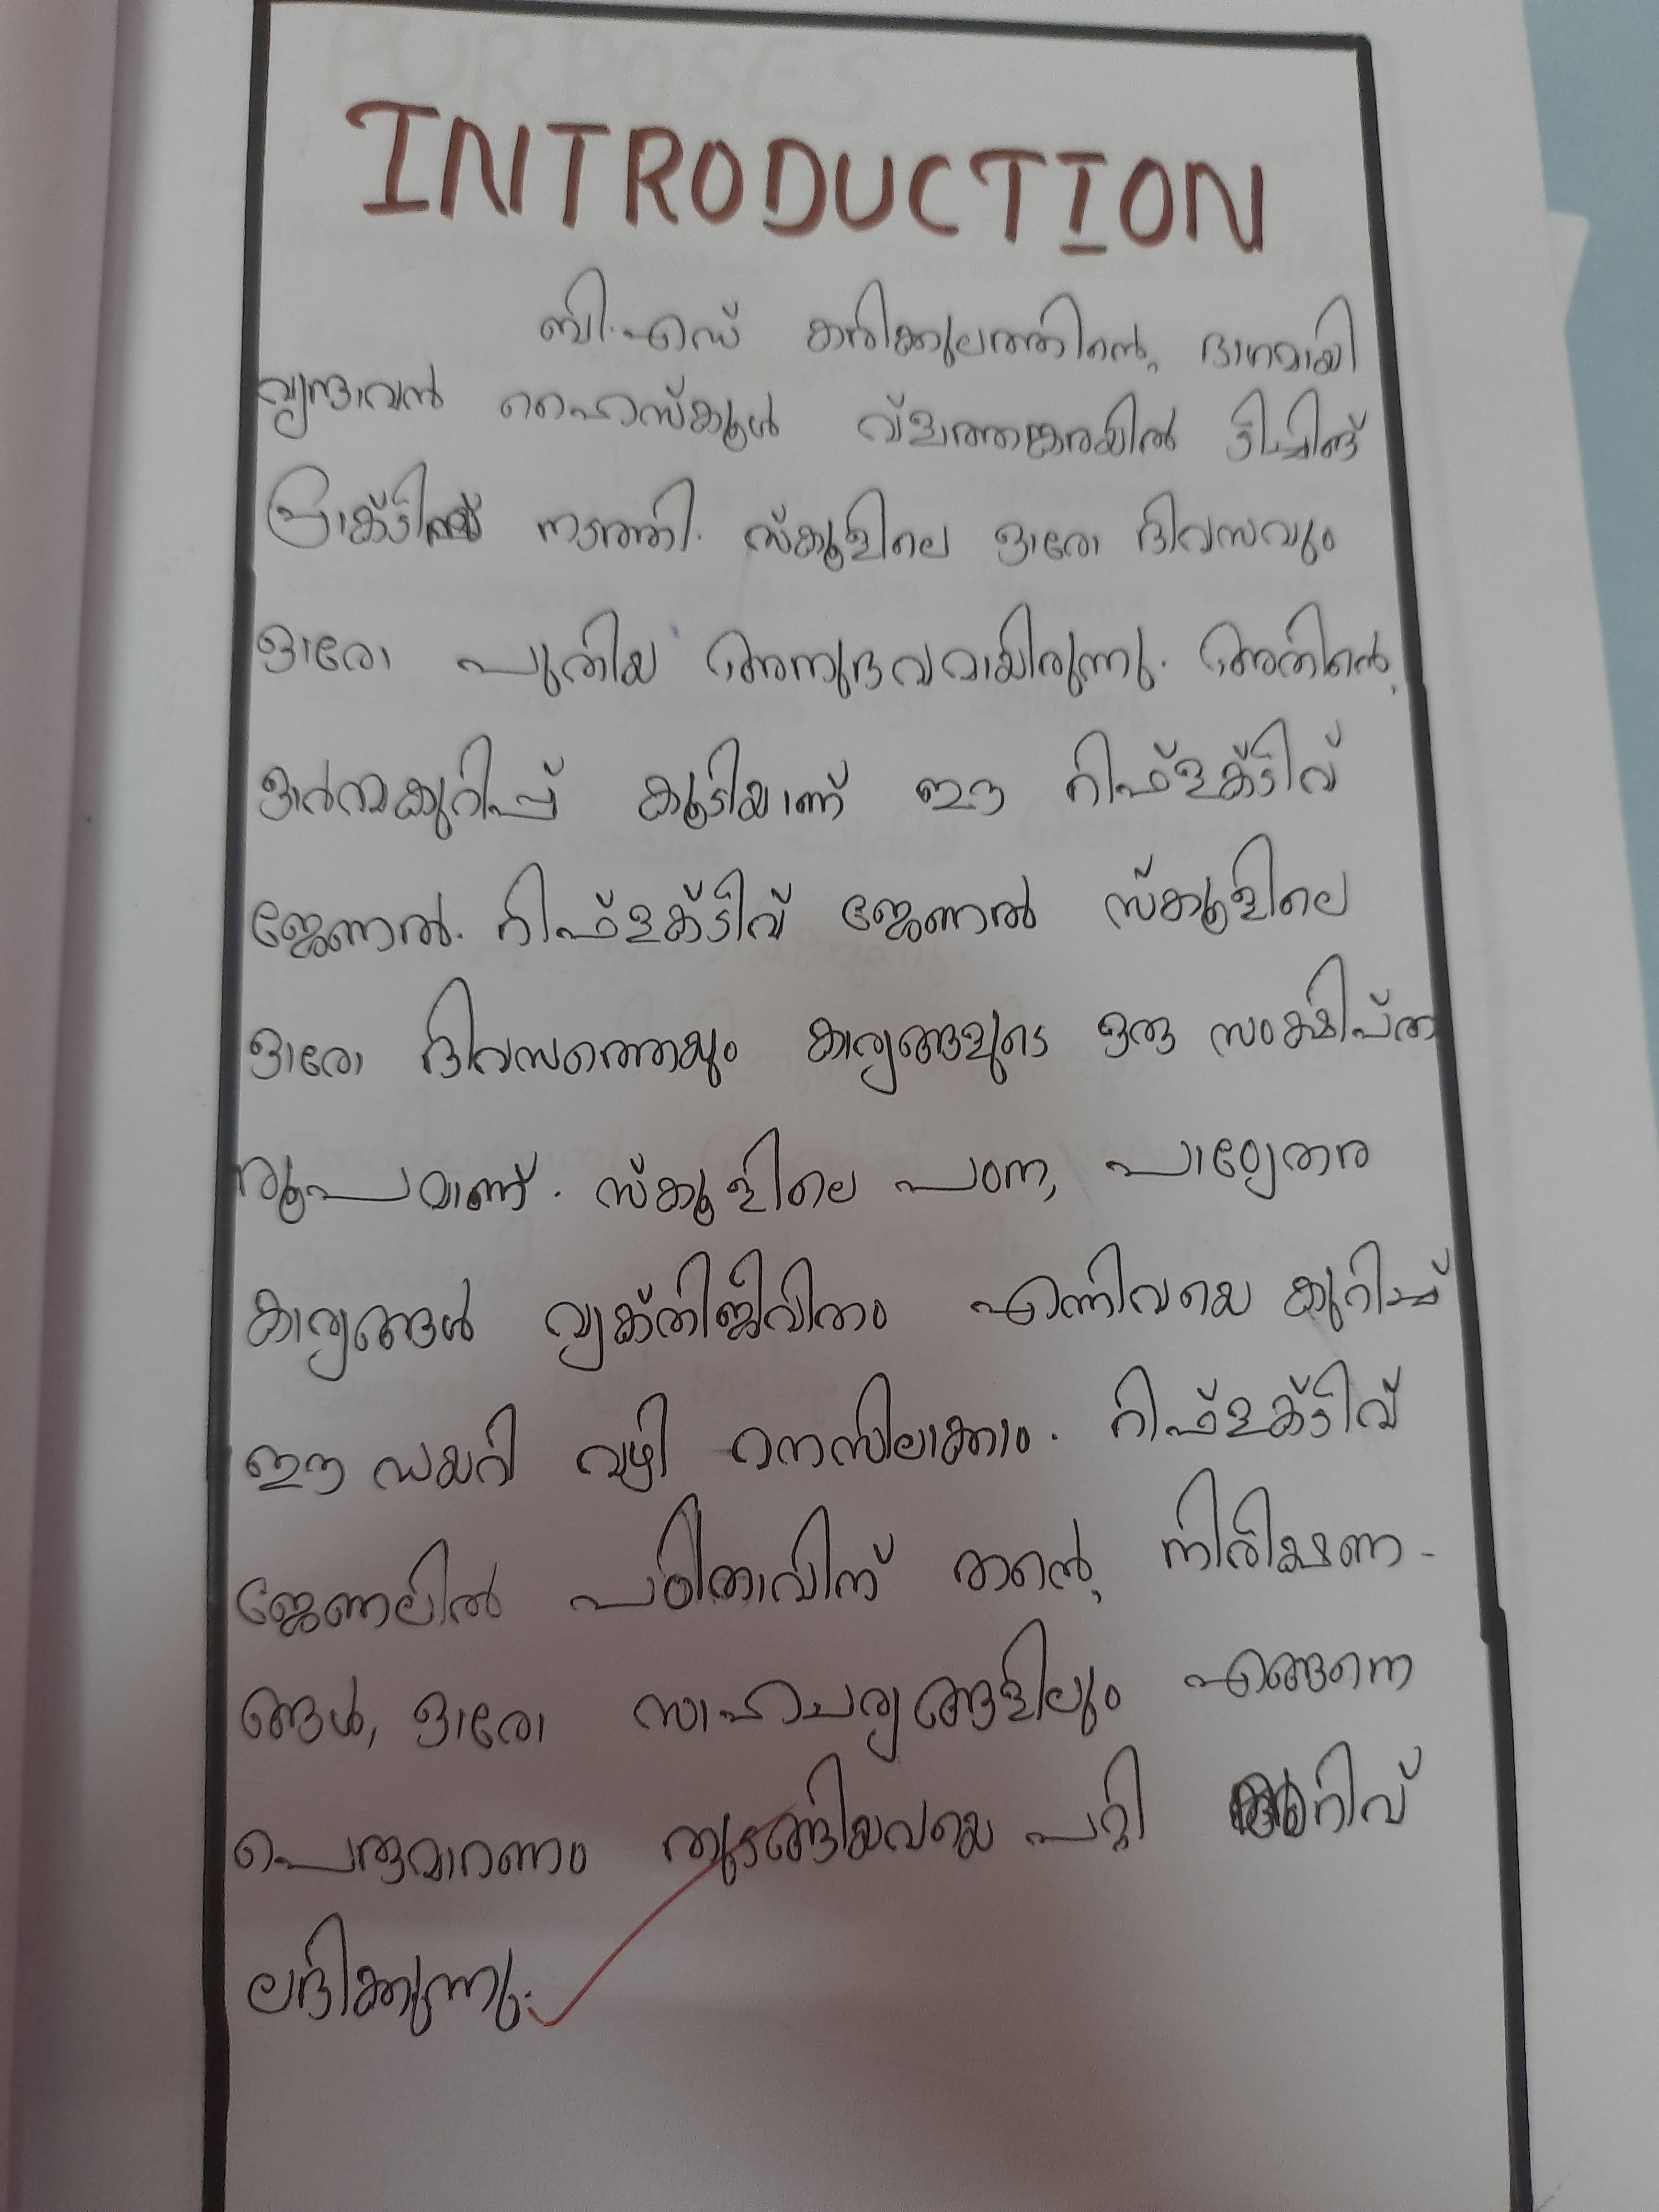 INTRODUCTION
ബി.എഡ് കരിക്കുലത്തിന്റെ ഭാഗമായി
വൃന്ദാവൻ ഹൈസ്കൂൾ വ്ളാത്താങ്കരയിൽ ടീച്ചിങ്ങ്
പ്രാക്ടീസ് നടത്തി. സ്കൂളിലെ ഓരോ ദിവസവും
ഓരോ പുതിയ അനുഭവമായിരുന്നു. അതിന്റെ
ഓർമ്മകുറിപ്പ് കൂടിയാണ് ഈ റിഫ്ളക്ടീവ്
ജേണൽ. റിഫ്ളക്ടീവ് ജേണൽ സ്കൂളിലെ
ഓരോ ദിവസത്തെയും കാര്യങ്ങളുടെ ഒരു സംക്ഷിപ്ത
രൂപമാണ്. സ്കൂളിലെ പഠന, പാഠ്യേതര
കാര്യങ്ങൾ വ്യക്തിജീവിതം എന്നിവയെ കുറിച്ച്
ഈ ഡയറി വഴി മനസിലാക്കാം. റിഫ്ളക്ടീവ്
ജേണലിൽ പഠിതാവിന് തന്റെ നിരീക്ഷണ-
ങ്ങൾ, ഓരോ സാഹചര്യങ്ങളിലും എങ്ങനെ
പെരുമാറണം തുടങ്ങിയവയെ പറ്റി അറിവ്
ലഭിക്കുന്നു.